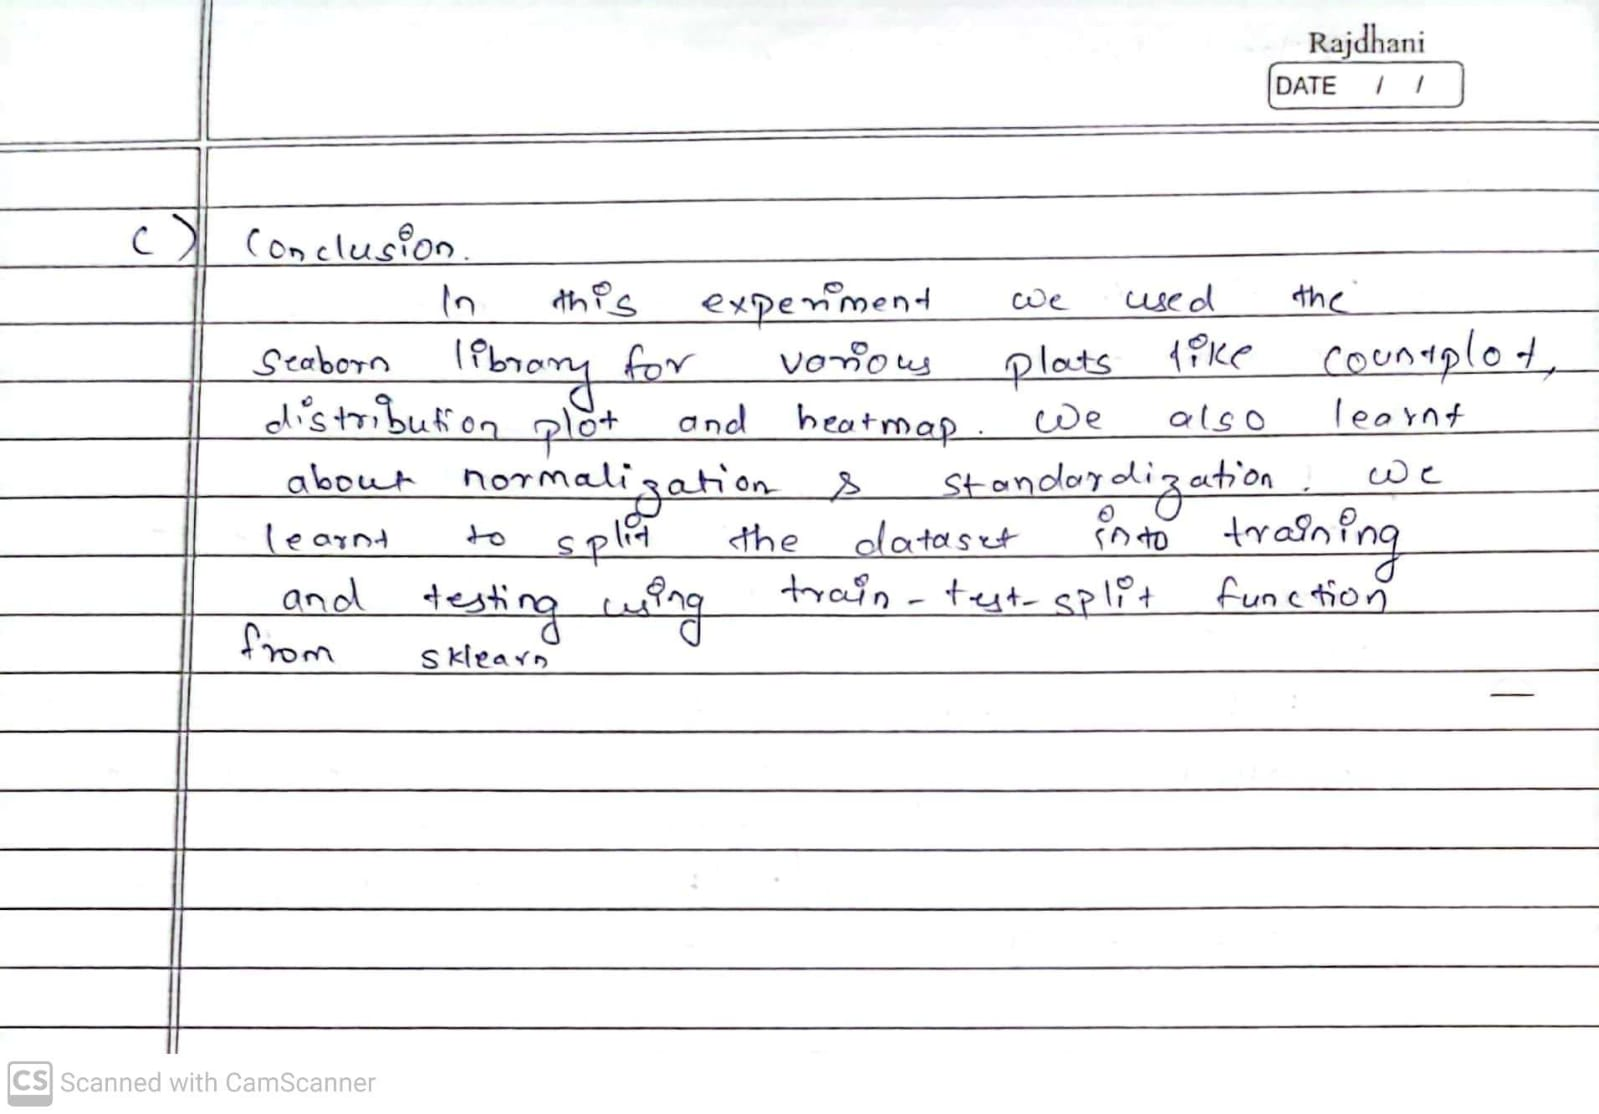 Rajdhani
DATE / /
c) Conclusion.
In this experiment we used the
Seaborn library for various plots like countplot,
distribution plot and heatmap. We also learnt
about normalization & standardization. we
learnt to split the dataset into training
and testing using train-test-split function
from sklearn
CS Scanned with CamScanner